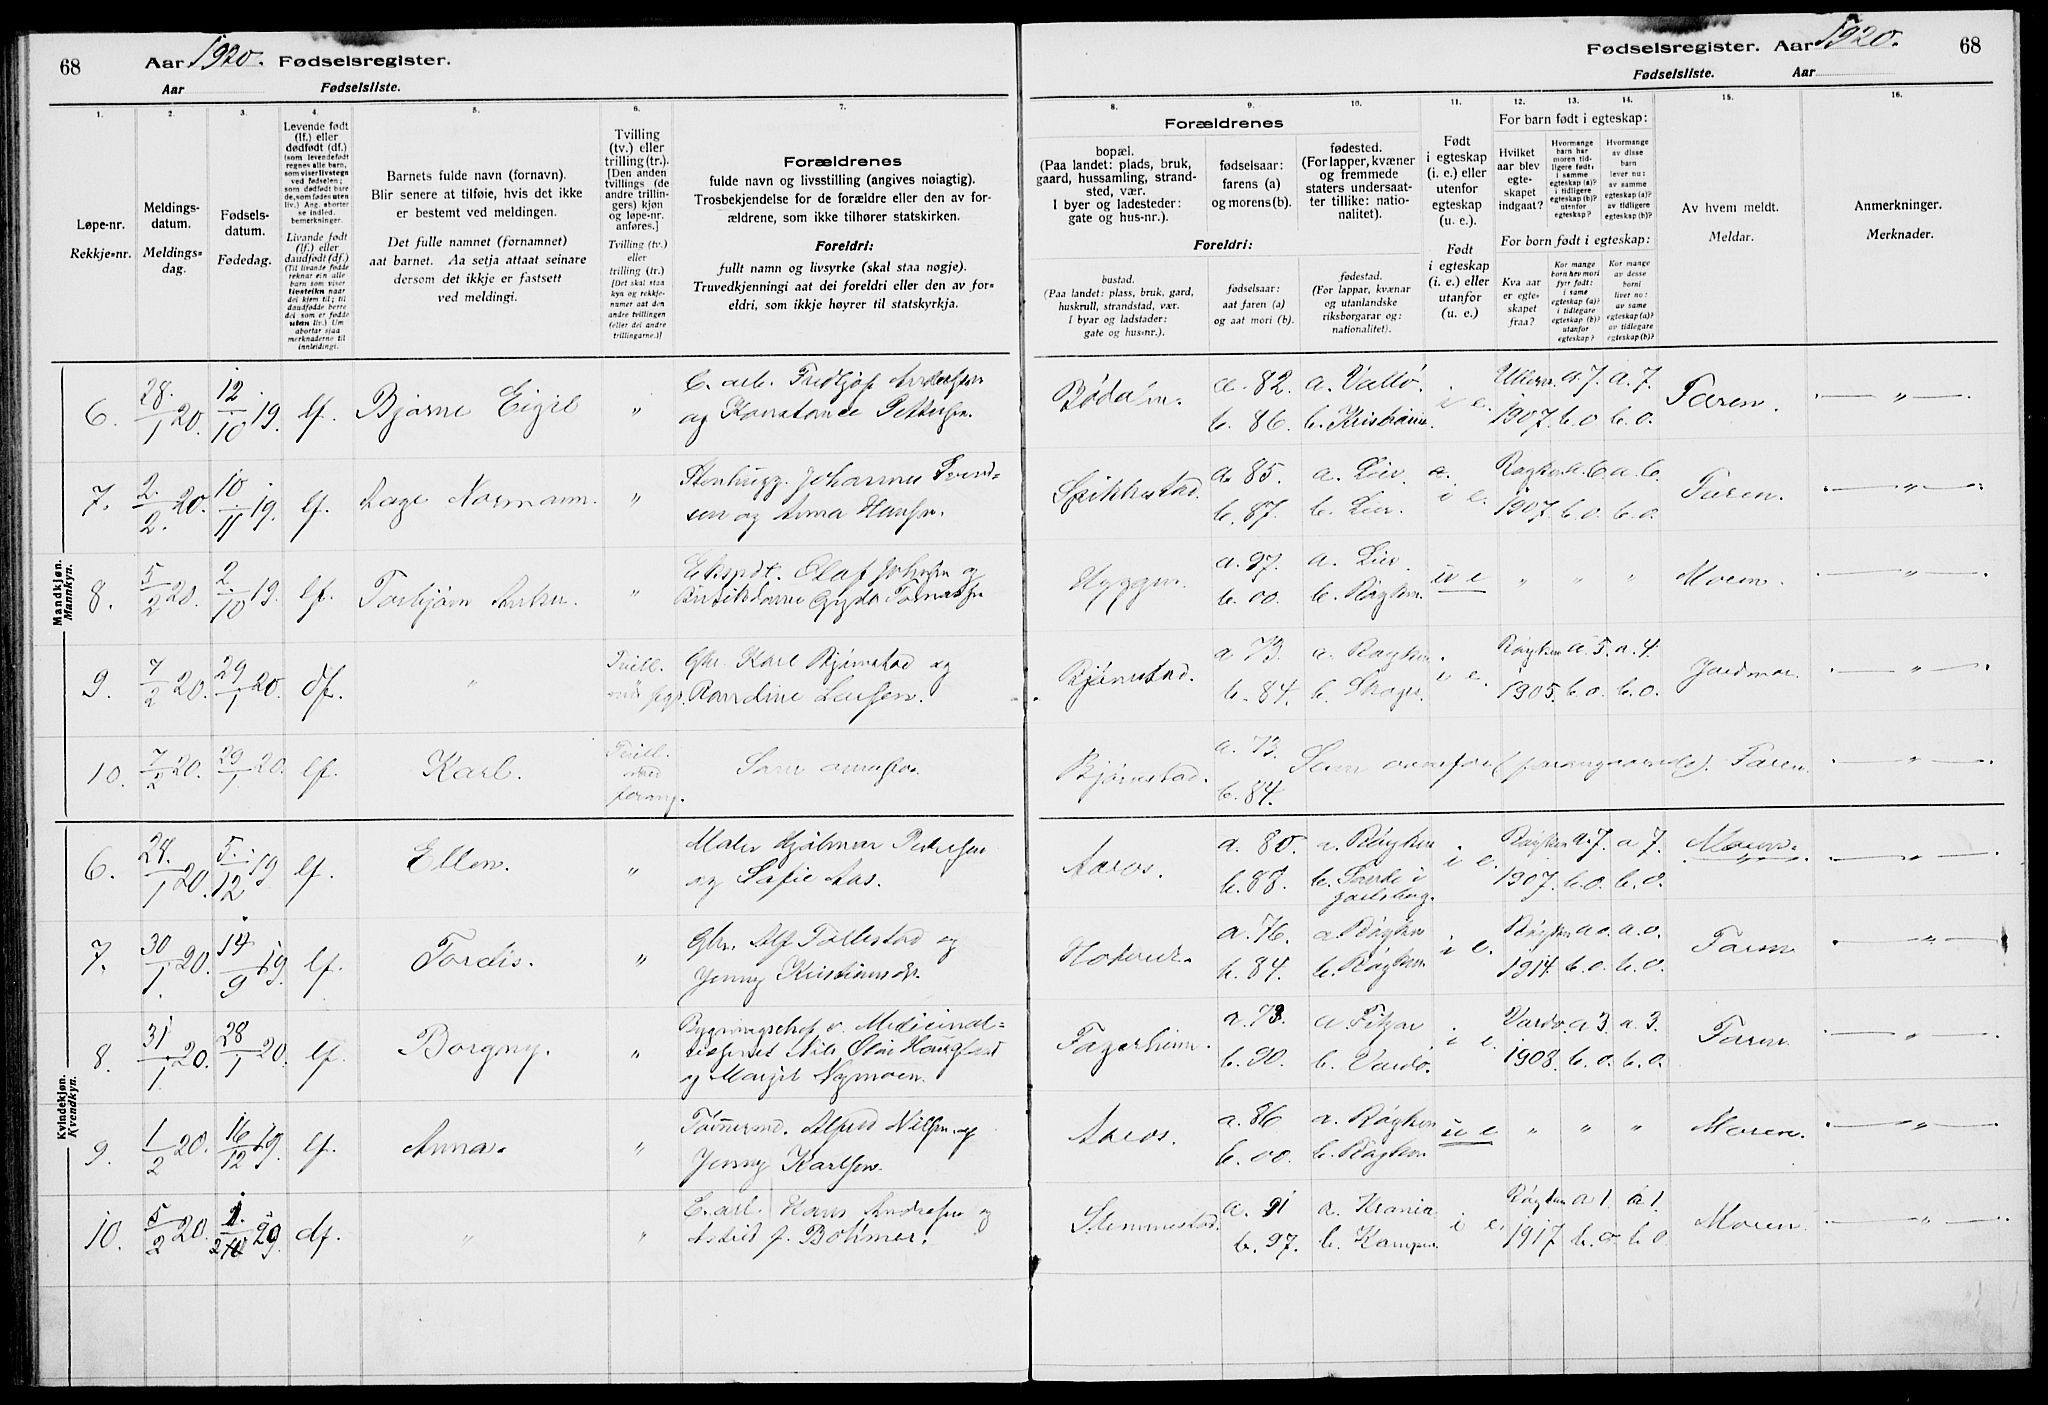 68 Aar 1920. Fødselsregister.
Aar Fødselsliste.
Fødselsregister. Aar 1920. 68
Fødselsliste. Aar
1. 2. 3. 4. 5. 6. 7.
Løpe-nr.
Rekkje=nr.
Meldings-
datum.
Meldings=
dag.
Fødsels-
datum.
Fødedag.
Levende født
(lf.) eller
dødfødt (df.)
(som levendefødt
regnes alle barn,
som viser livstegn
ved fødselen;
som dødfødt bare
de, som fødes uten
liv.) Ang. aborter
se indled.
bemerkninger.
Livande født
(lf.) eller
daudfødt (df.)
(Til livande fødde
reknar ein alle
barn som viser
livsteikn naar
dei kjem til; til
daudfødde berre
dei som er fødde
utan liv.) Um
abortar sjaa
merknaderne til
innleidingi.
Barnets fulde navn (fornavn).
Blir senere at tilføie, hvis det ikke
er bestemt ved meldingen.
Det fulle namnet (fornamnet)
aat barnet. Aa setja attaat seinare
dersom det ikkje er fastsett
ved meldingi.
Tvilling
(tv.) eller
trilling (tr.).
[Den anden
tvillings (de
andre trillin-
gers) kjøn
og løpe-nr.
anføres.]
Tvilling (tv.)
eller
trilling (tr.)
[Det skal staa
kyn og rekkje-
numer aat den
andre tvillingen
(eller dei andre
trillingarne.)]
Forældrenes
fulde navn og livsstilling (angives nøiagtig).
Trosbekjendelse for de forældre eller den av for-
ældrene, som ikke tilhører statskirken.
Foreldri:
fullt namn og livsyrke (skal staa nøgje).
Truvedkjenningi aat dei foreldri eller den av for=
eldri, som ikkje høyrer til statskyrkja.
8. 9. 10. 11. 12. 13. 14. 15. 16.
Forældrenes
bopæl.
(Paa landet: plads, bruk,
gaard, hussamling, strand-
sted, vær.
I byer og ladesteder:
gate og hus-nr.).
fødselsaar:
farens (a)
og morens (b).
fødested.
(For lapper, kvæner
og fremmede
staters undersaat-
ter tillike: natio-
nalitet).
Foreldri:
bustad.
(Paa landet: plass, bruk, gard,
huskrull, strandstad, vær.
I byar og ladstader:
gate og hus=nr.).
fødselsaar:
aat faren (a)
og aat mori (b).
fødestad.
(For lappar, kvænar
og utanlandske
riksborgarar og:
nationalitet).
Født
i egteskap
(i. e.) eller
utenfor
egteskap
(u. e.).
Født
i egteskap
(i. e.) eller
utanfor
(u. e.)
For barn født i egteskap:
Hvilket
aar blev
egte-
skapet
indgaat?
Hvormange
barn har
moren tid-
ligere født:
i samme
egteskap (a)?
i tidligere
egteskap (b)?
utenfor
egteskap?
Hvormange
av disse
barn
lever nu:
av samme
egteskap (a)?
av tidligere
egteskap (b)?
For born født i egteskap:
Kva aar
er egte-
skapet
fraa?
Kor mange
born hev mori
fyrr født:
i same
egteskap (a)?
i tidlegare
egteskap (b)?
utanfor
egteskap?
Kor mange
av desse
borni
liver no:
av same
egteskap (a)?
av tidlegare
egteskap (b)?
Av hvem meldt.
Meldar.
Anmerkninger.
Merknader.
Mandkjøn.
Mannkyn.
6. 28./1 20. 12/10 19. lf. Bjarne Eigil " E. arb. Fridtjof Andersen
og Konstance Pettersen. Bødalen. a. 82. b. 86. a. Vallø. b. Kristiania. i e. 1907. a. 7. b. o a. 7. b. o. Faren. — " —
7. 2./2. 20. 10/11 19. lf. Aage Normann. " Stenhugg. Johannes Svend-
sen og Anna Hansen. Spikkestad. a. 85. b. 87. a. Lier. b. Lier. i e. Røyken 1907. a. 6. b. o. a. 6. b. o. Faren. — " —
8. 5/2 20. 2./10 19. lf. Torbjørn Anker. " Ekspdt. Olaf Johnsen og
Butikdame Gyda Hyggen. a. 97. b. 00. a. Lier. b. Røyken. u e " " " Moren. — " —
9. 7/2 20. 29/1 20. df. " Tvill. Gbr. Karl Bjørnstad og
Randine Larsen. Bjørnstad. a 73. b. 84. a. Røyken. b. Skoger. i e. Røyken 1905. a. 5. b. o. a. 4. b. o. Jordmor. — " —
10. 7/2 20. 29/1 20. lf. Karl. Tvill.
med
forang. Som ovenfor. Bjørnstad. a. 73. b. 84. Som ovenfor (foregaaende). Faren. — " —
Kvindekjøn.
Kvendkyn.
6. 28./1 20. 5./12 19 lf. Ellen. " Maler Hjalmar Pedersen
og Sofie Aas. Aaros. a. 80. b. 88. a. Røyken b. Sande i
Jarlsberg. i e. Røyken 1907. a. 7. b. o. a 7. b. o. Moren. — " —
7. 30/1. 20. 14/9 19. lf. Tordis. " Gbr. Alf Tollestad og
Jenny Kristiansen. a. 76. b. 84. a. Røyken b. Røyken i e. Røyken 1914. a o. b. o. a. o. b. o. Faren — " —
8. 31/1. 20. 28/1 20. lf. Borgny. " Bygningschef v. Medicinal=
Nils Olai Haugland
og Margit Nymoen. Fagerheim. a. 73. b. 90. a Fitjar b. Vardø. i e. Vardø 1908. a 3. b. o. a. 3. b. o. Faren — " —
9. 1/2 20. 16/12 19. lf. Anna. " Tømmermd. Alfred Nilsen og
Jenny Karlsen. Aaros. a. 86 b. 00. a. Røyken b. Røyken. u e " " " Moren. — " —
10. 5/2 20. df. " " E. arb. Hans Andersen og
Astrid f. Bøhmer. Slemmestad. a. 91 b. 97. a. Krania b. i e. Røyken 1917. a 1. b. o. a 1. b. o Moren. — " —